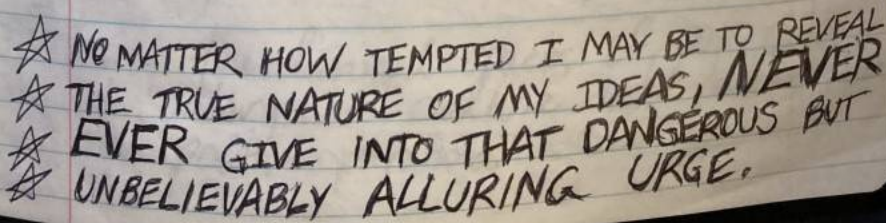 ☆ NO MATTER HOW TEMPTED I MAY BE TO REVEAL
☆ THE TRUE NATURE OF MY IDEAS, NEVER
☆ EVER GIVE INTO THAT DANGEROUS BUT
☆ UNBELIEVABLY ALLURING URGE.